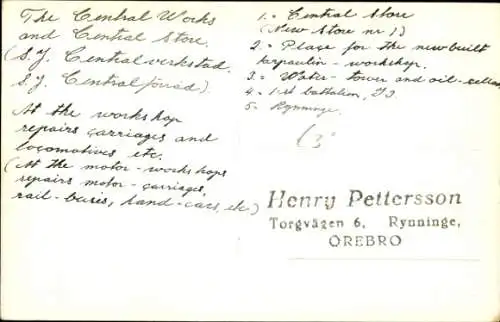 The Central Works
and Central Store.
(S.J. Centralverkstad.
S.J. Centralförråd)
At the workshop
repairs carriages and
locomotives etc.
(At the motor-workshops
repairs motor-carriages,
rail-buses, hand-cars, etc)
1. Central Store
(New Store nr 1)
2. Place for the newbuilt
tarpaulin-workshop.
3. Water-tower and oil-cellar
4. 1:st battalion, I3
5. Rynninge.
Henry Pettersson
Torgvägen 6, Rynninge,
ÖREBRO